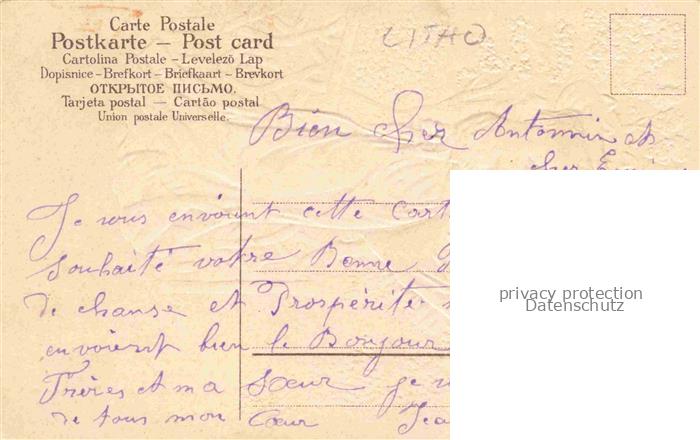 Carte Postale
Postkarte — Post card
Cartolina Postale – Levelező Lap
Dopisnice – Brefkort – Briefkaart – Brevkort
ОТКРЫТОЕ ПИСЬМО.
Tarjeta postal — Cartão postal
Union postale Universelle.
LITHO
Bien cher Antonnin et
cher
Je vous envoient cette Cart
souhaité votre Bonne
de chanse et Prospérité
envoient bien le Bonjour
Frères et ma Sœur je
de tous mon Cœur
privacy protection
Datenschutz